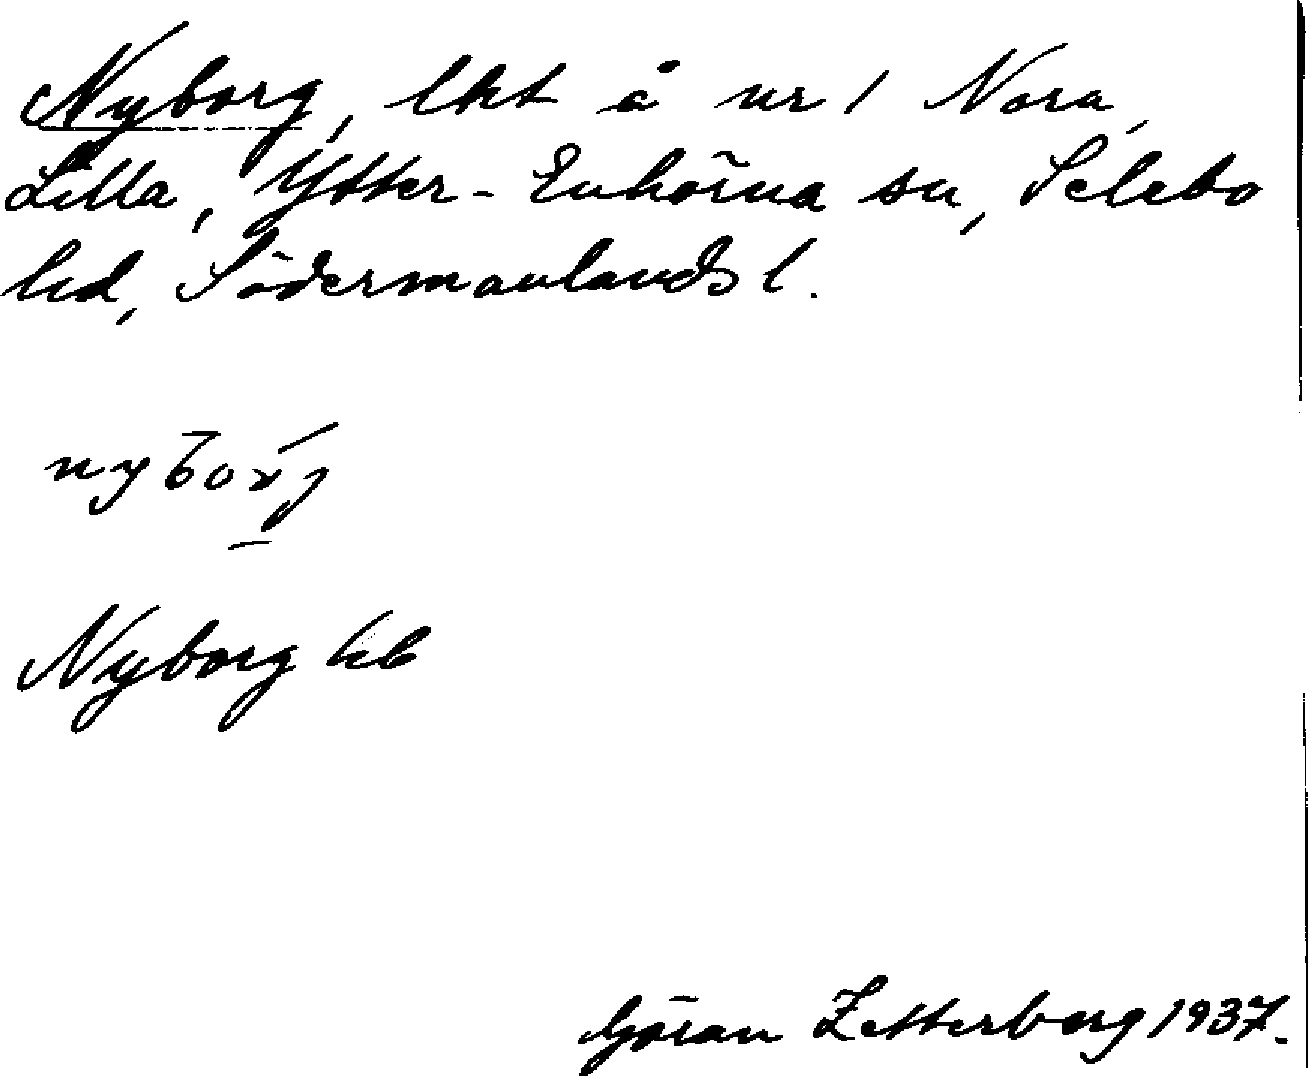 Nyborg, lht å nr 1 Nora,
Lilla, Ytter-Enhörna sn, Selebo
hd, Södermanlands l.
Nyborg hb
Göran Zetterberg 1937.